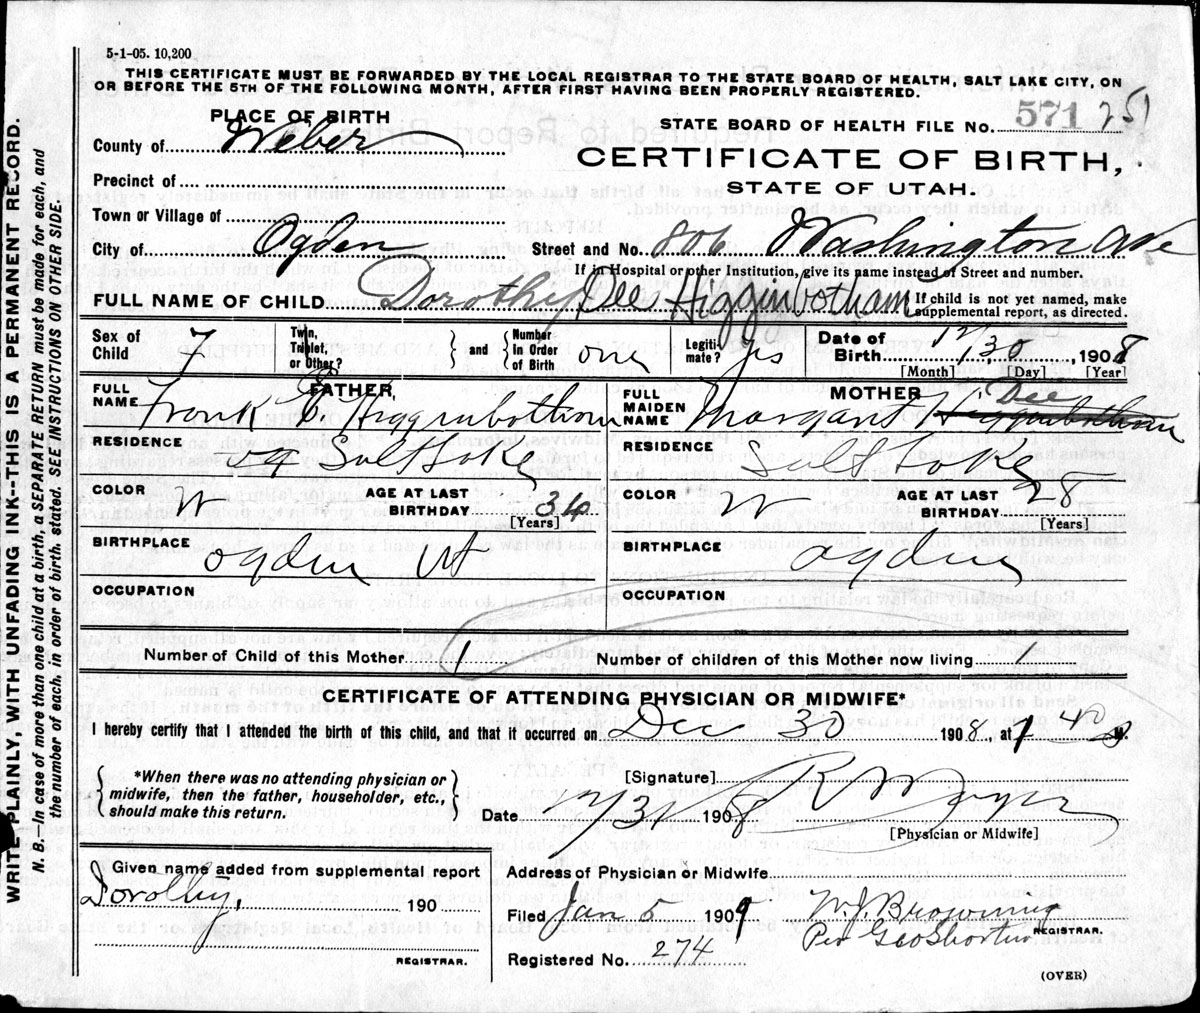 5-1-05. 10,200
THIS CERTIFICATE MUST BE FORWARDED BY THE LOCAL REGISTRAR TO THE STATE BOARD OF HEALTH, SALT LAKE CITY, ON
OR BEFORE THE 5TH OF THE FOLLOWING MONTH, AFTER FIRST HAVING BEEN PROPERLY REGISTERED.
PLACE OF BIRTH
STATE BOARD OF HEALTH FILE No. 571 251
County of Weber
CERTIFICATE OF BIRTH,
STATE OF UTAH.
Precinct of
Town or Village of
City of Ogden Street and No. 806 Washington Ave
If in Hospital or other Institution, give its name instead of Street and number.
FULL NAME OF CHILD Dorothy Dee Higginbotham If child is not yet named, make
supplemental report, as directed.
Sex of Child F Twin, Triplet, or Other? and Number in Order of Birth one Legiti-mate? yes Date of Birth 12/30, 1908
[Month] [Day] [Year]
FATHER MOTHER
FULL NAME Frank E. Higginbotham FULL MAIDEN NAME Margaret Higginbotham Dee
RESIDENCE Salt Lake RESIDENCE Salt Lake
COLOR W AGE AT LAST BIRTHDAY 34 [Years] COLOR W AGE AT LAST BIRTHDAY 28 [Years]
BIRTHPLACE Ogden Ut BIRTHPLACE Ogden
OCCUPATION OCCUPATION
Number of Child of this Mother 1 Number of children of this Mother now living 1
CERTIFICATE OF ATTENDING PHYSICIAN OR MIDWIFE*
I hereby certify that I attended the birth of this child, and that it occurred on Dec 30 1908, at 1 40 M.
*When there was no attending physician or
midwife, then the father, householder, etc.,
should make this return.
[Signature]
Date 12/31 1908
[Physician or Midwife]
Given name added from supplemental report
Dorothy, 190
REGISTRAR.
Address of Physician or Midwife
Filed Jan 5 1909 W. J. Browning
Per Geo Shorten REGISTRAR.
Registered No. 274
(OVER)
WRITE PLAINLY, WITH UNFADING INK--THIS IS A PERMANENT RECORD.
N. B.—In case of more than one child at a birth, a SEPARATE RETURN must be made for each, and
the number of each, in order of birth, stated. SEE INSTRUCTIONS ON OTHER SIDE.